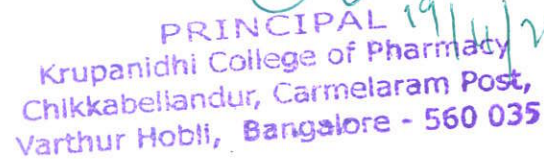 PRINCIPAL 19/11/2
Krupanidhi College of Pharmacy
Chikkabellandur, Carmelaram Post,
Varthur Hobli, Bangalore - 560 035